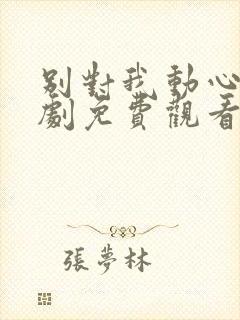 別對我動心
劇免費觀看
張夢林